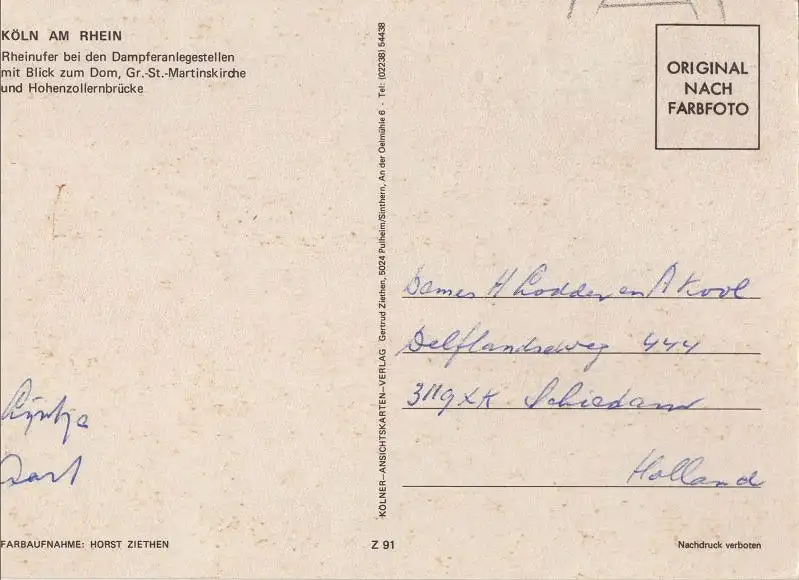 KÖLN AM RHEIN
Rheinufer bei den Dampferanlegestellen
mit Blick zum Dom, Gr.-St.-Martinskirche
und Hohenzollernbrücke
ORIGINAL
NACH
FARBFOTO
KÖLNER—ANSICHTSKARTEN—VERLAG Gertrud Ziethen, 5024 Pulheim/Sinthern, An der Oelmühle 6 · Tel: (02238) 54438
Dames H Lodder en A Kool
Delflandseweg 444
3119XK Schiedam
Holland
Bart
FARBAUFNAHME: HORST ZIETHEN
Z 91
Nachdruck verboten